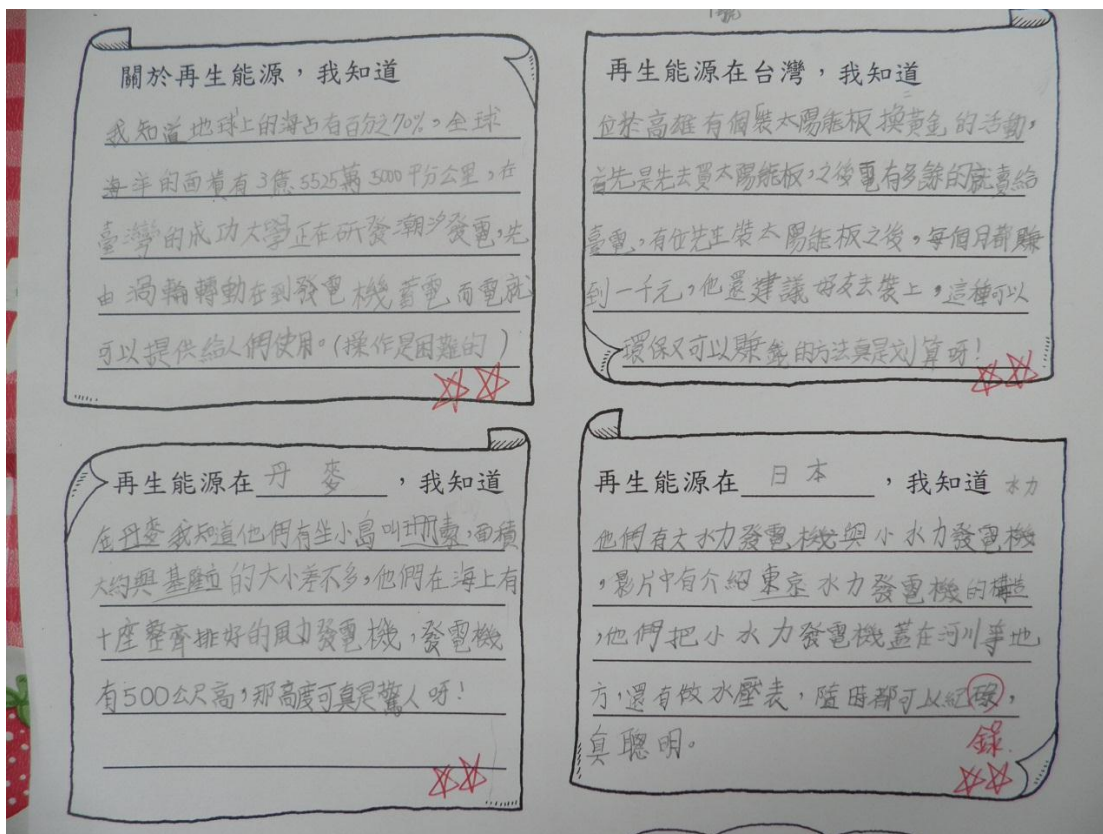 關於再生能源，我知道
我知道地球上的海占有百分之70%，全球
海洋的面積有3億5525萬5000平分公里，在
臺灣的成功大學正在研發潮汐發電，先
由渦輪轉動在到發電機蓄電而電就
可以提供給人們使用。(操作是困難的)
再生能源在台灣，我知道
位於高雄有個裝太陽能板換黃金的活動，
首先是先去買太陽能板，之後電有多餘的就賣給
臺電，有位先生裝太陽能板之後，每個月都賺
到一千元，他還建議好友去裝上，這種可以
環保又可以賺錢的方法真是划算呀！
再生能源在丹麥，我知道
在丹麥我知道他們有坐小島叫，面積
大約與基隆的大小差不多，他們在海上有
十座整齊排好的風力發電機，發電機
有500公尺高，那高度可真是驚人呀！
再生能源在日本，我知道 水力
他們有大水力發電機與小水力發電機
，影片中有介紹東京水力發電機的構造
，他們把小水力發電機蓋在河川等地
方，還有做水壓表，隨時都可以紀碌，
錄
真聰明。